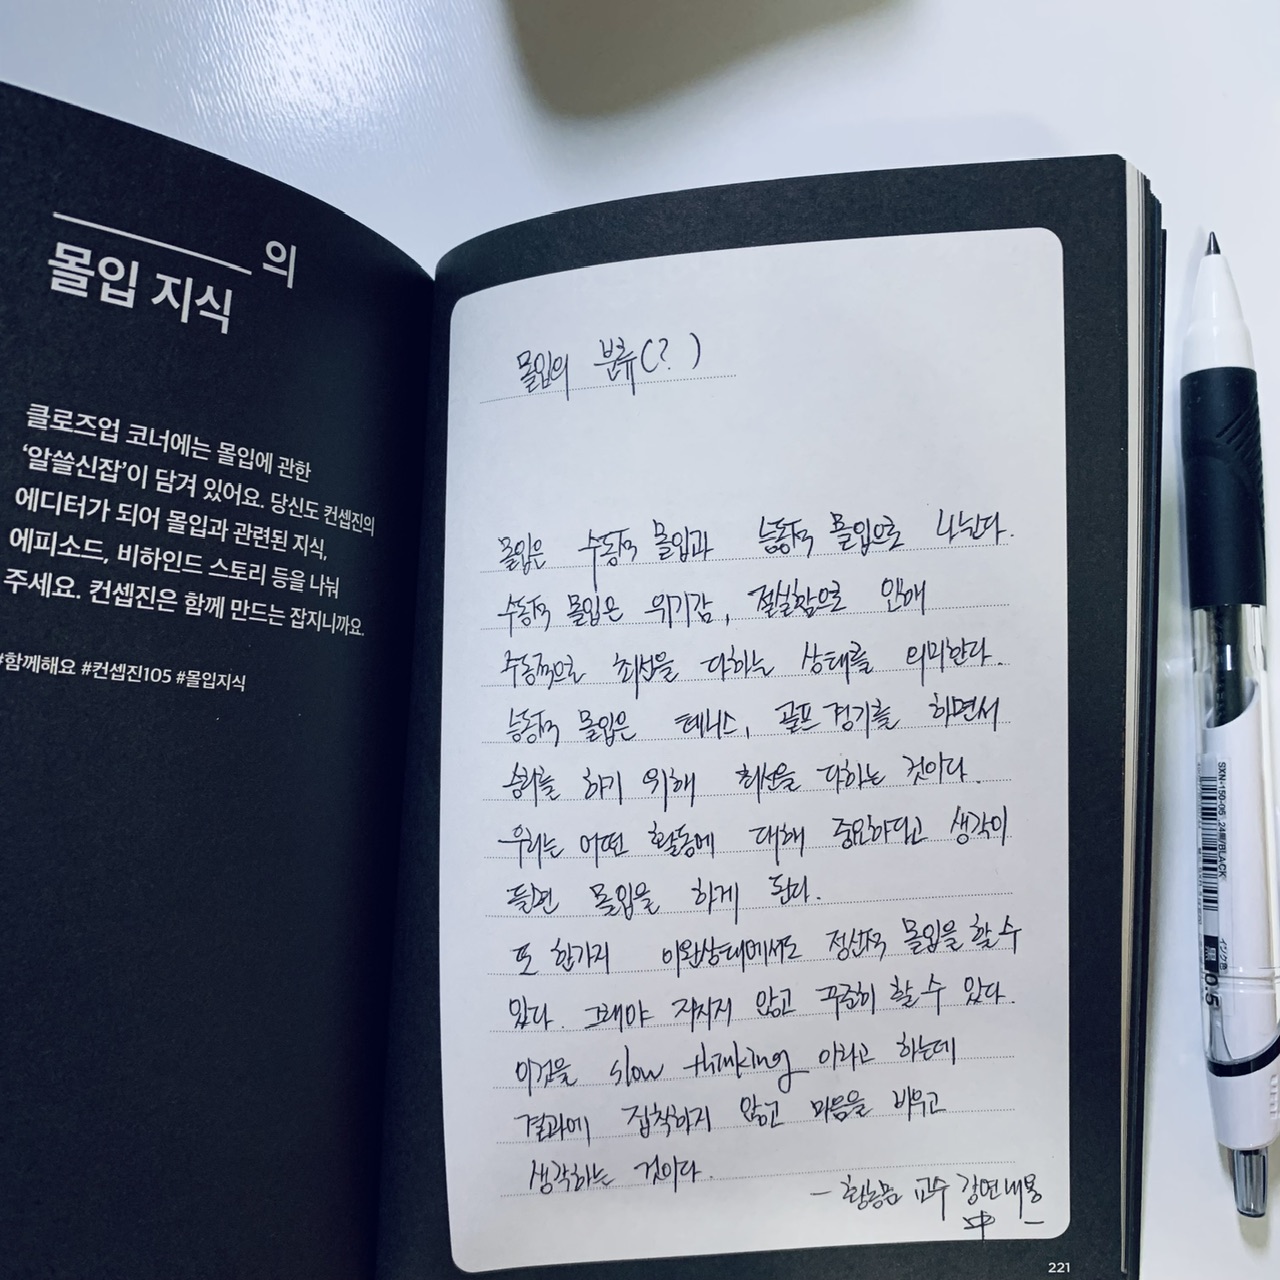 의
몰입 지식
클로즈업 코너에는 몰입에 관한
‘알쓸신잡’이 담겨 있어요. 당신도 컨셉진의
에디터가 되어 몰입과 관련된 지식,
에피소드, 비하인드 스토리 등을 나눠
주세요. 컨셉진은 함께 만드는 잡지니까요.
#함께해요 #컨셉진105 #몰입지식
몰입의 분류(?)
몰입은 수동적 몰입과 능동적 몰입으로 나뉜다.
수동적 몰입은 위기감, 절실함으로 인해
수동적으로 최선을 다하는 상태를 의미한다.
능동적 몰입은 테니스, 골프 경기를 하면서
승리를 하기 위해 최선을 다하는 것이다.
우리는 어떤 활동에 대해 중요하다고 생각이
들면 몰입을 하게 된다.
또 한가지 이완상태에서도 정신적 몰입을 할 수
있다. 그래야 지치지 않고 꾸준히 할 수 있다.
이것을 slow thinking 이라고 하는데
결과에 집착하지 않고 마음을 비우고
생각하는 것이다.
- 황농문 교수 강연내용
中 -
221
SXN-150-05 24黒/BLACK
インク色
0.5
uni